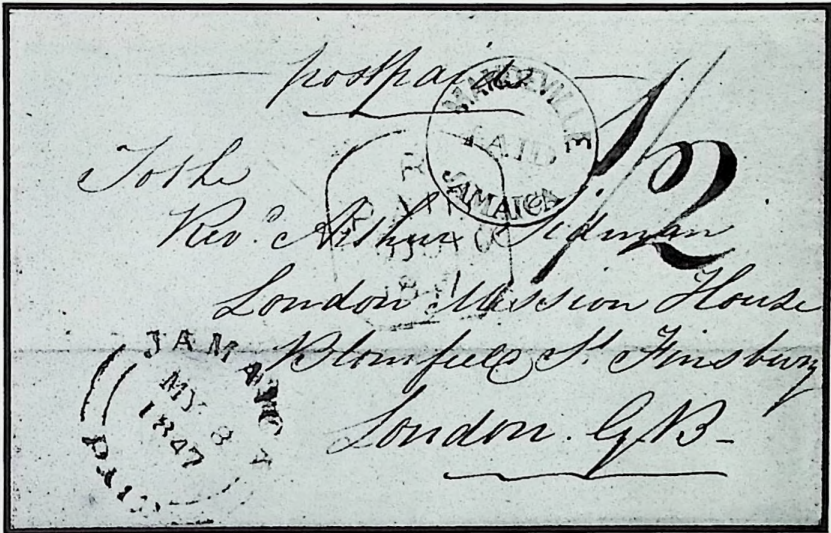 postpaid
MANDEVILLE
PAID
JAMAICA
1/2
To the
Revd. Arthur Tidman
London Mission House
Blomfield St. Finsbury
London. G B -
JAMAICA
MY 8
1847
PAID